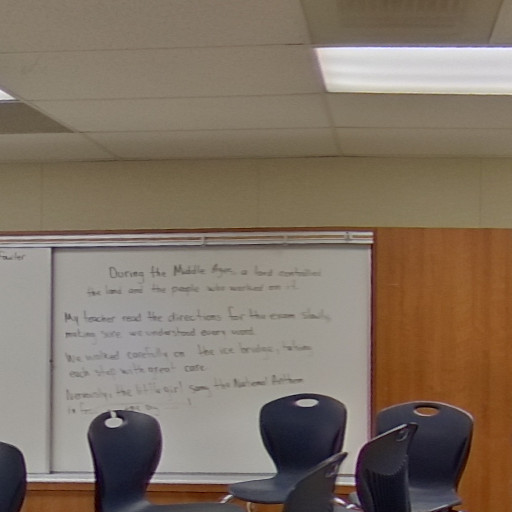 During the Middle Ages, a lord controlled
the land and the people who worked on it.
My teacher read the directions for the exam slowly,
making sure we understood every word.
We walked carefully on the ice bridge, taking
each step with great care.
Nervously, the little girl sang the National Anthem
in